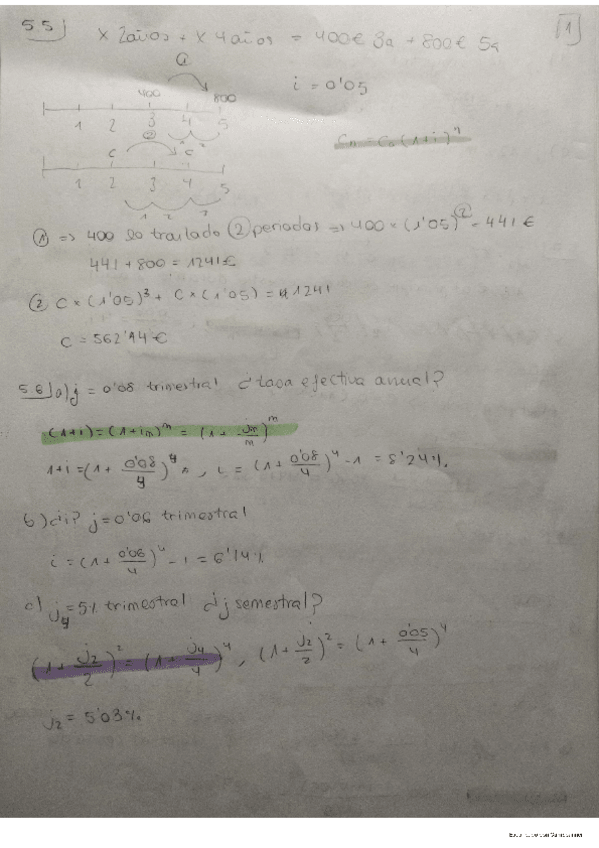 5.5) x 2años + x 4años = 400€ 3a + 800€ 5a
[1]
i = 0'05
①
400 800
1 2 3 4 5
Cn = C0 (1+i)^n
②
C C
1 2 3 4 5
1 2 3
① => 400 lo traslado ② periodos => 400 x (1'05)^② = 441 €
441 + 800 = 1241€
② C x (1'05)^3 + C x (1'05) = 1241
C = 562'14 €
5.6) a) j = 0'08 trimestral ¿tasa efectiva anual?
(1+i) = (1+im)^m = (1 + jm/m)^m
1+i = (1 + 0'08/4)^4 , i = (1 + 0'08/4)^4 - 1 = 8'24%
b) ¿i? j = 0'06 trimestral
i = (1 + 0'06/4)^4 - 1 = 6'14%
c) j4 = 5% trimestral ¿j semestral?
(1 + j2/2)^2 = (1 + j4/4)^4 , (1 + j2/2)^2 = (1 + 0'05/4)^4
j2 = 5'03%